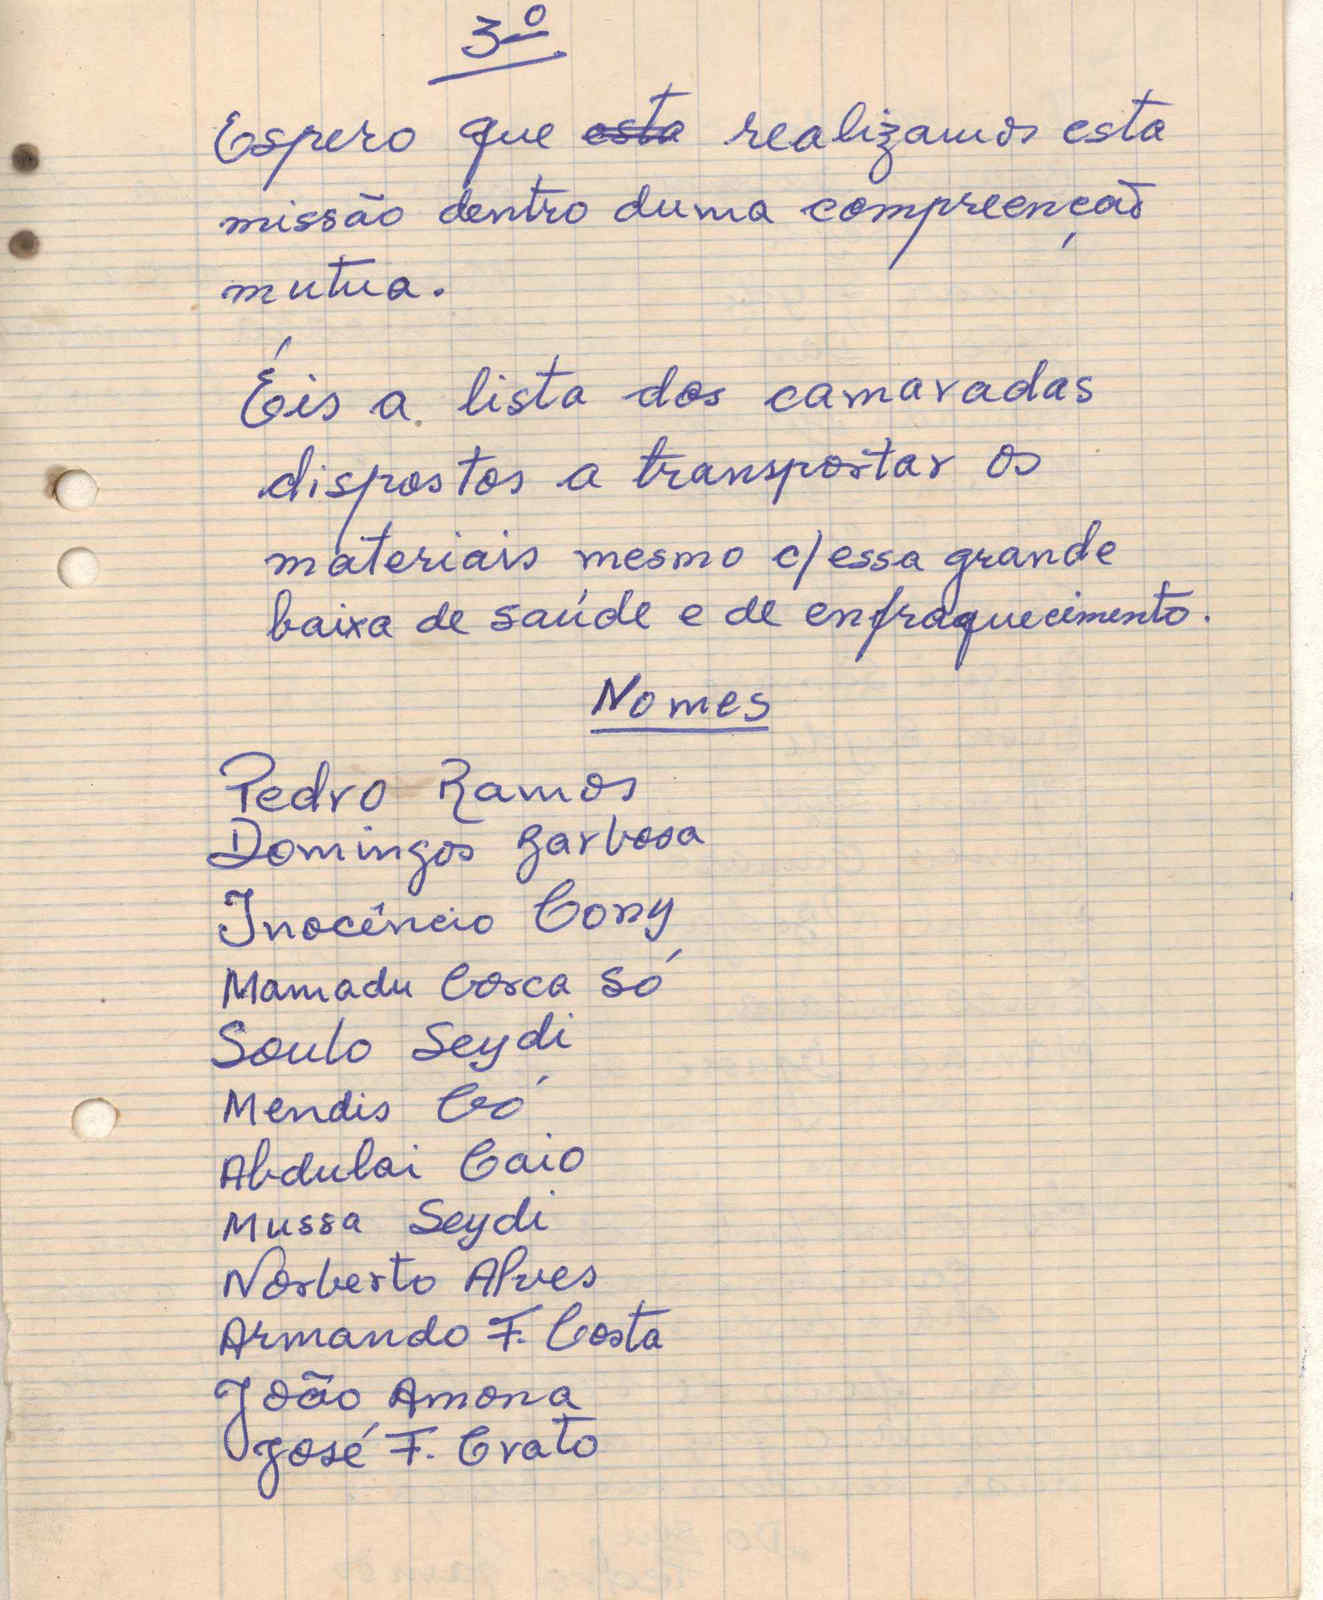 3º
Espero que esta realizamos esta
missão dentro duma compreenção
mutua.
Éis a lista dos camaradas
dispostos a transportar os
materiais mesmo c/ essa grande
baixa de saúde e de enfraquecimento.
Nomes
Pedro Ramos
Domingos Barbosa
Inocêncio Cony
Mamadu Corca Só
Soulo Seydi
Mendis Có
Abdulai Caio
Mussa Seydi
Norberto Alves
Armando F. Costa
João Amona
José F. Crato